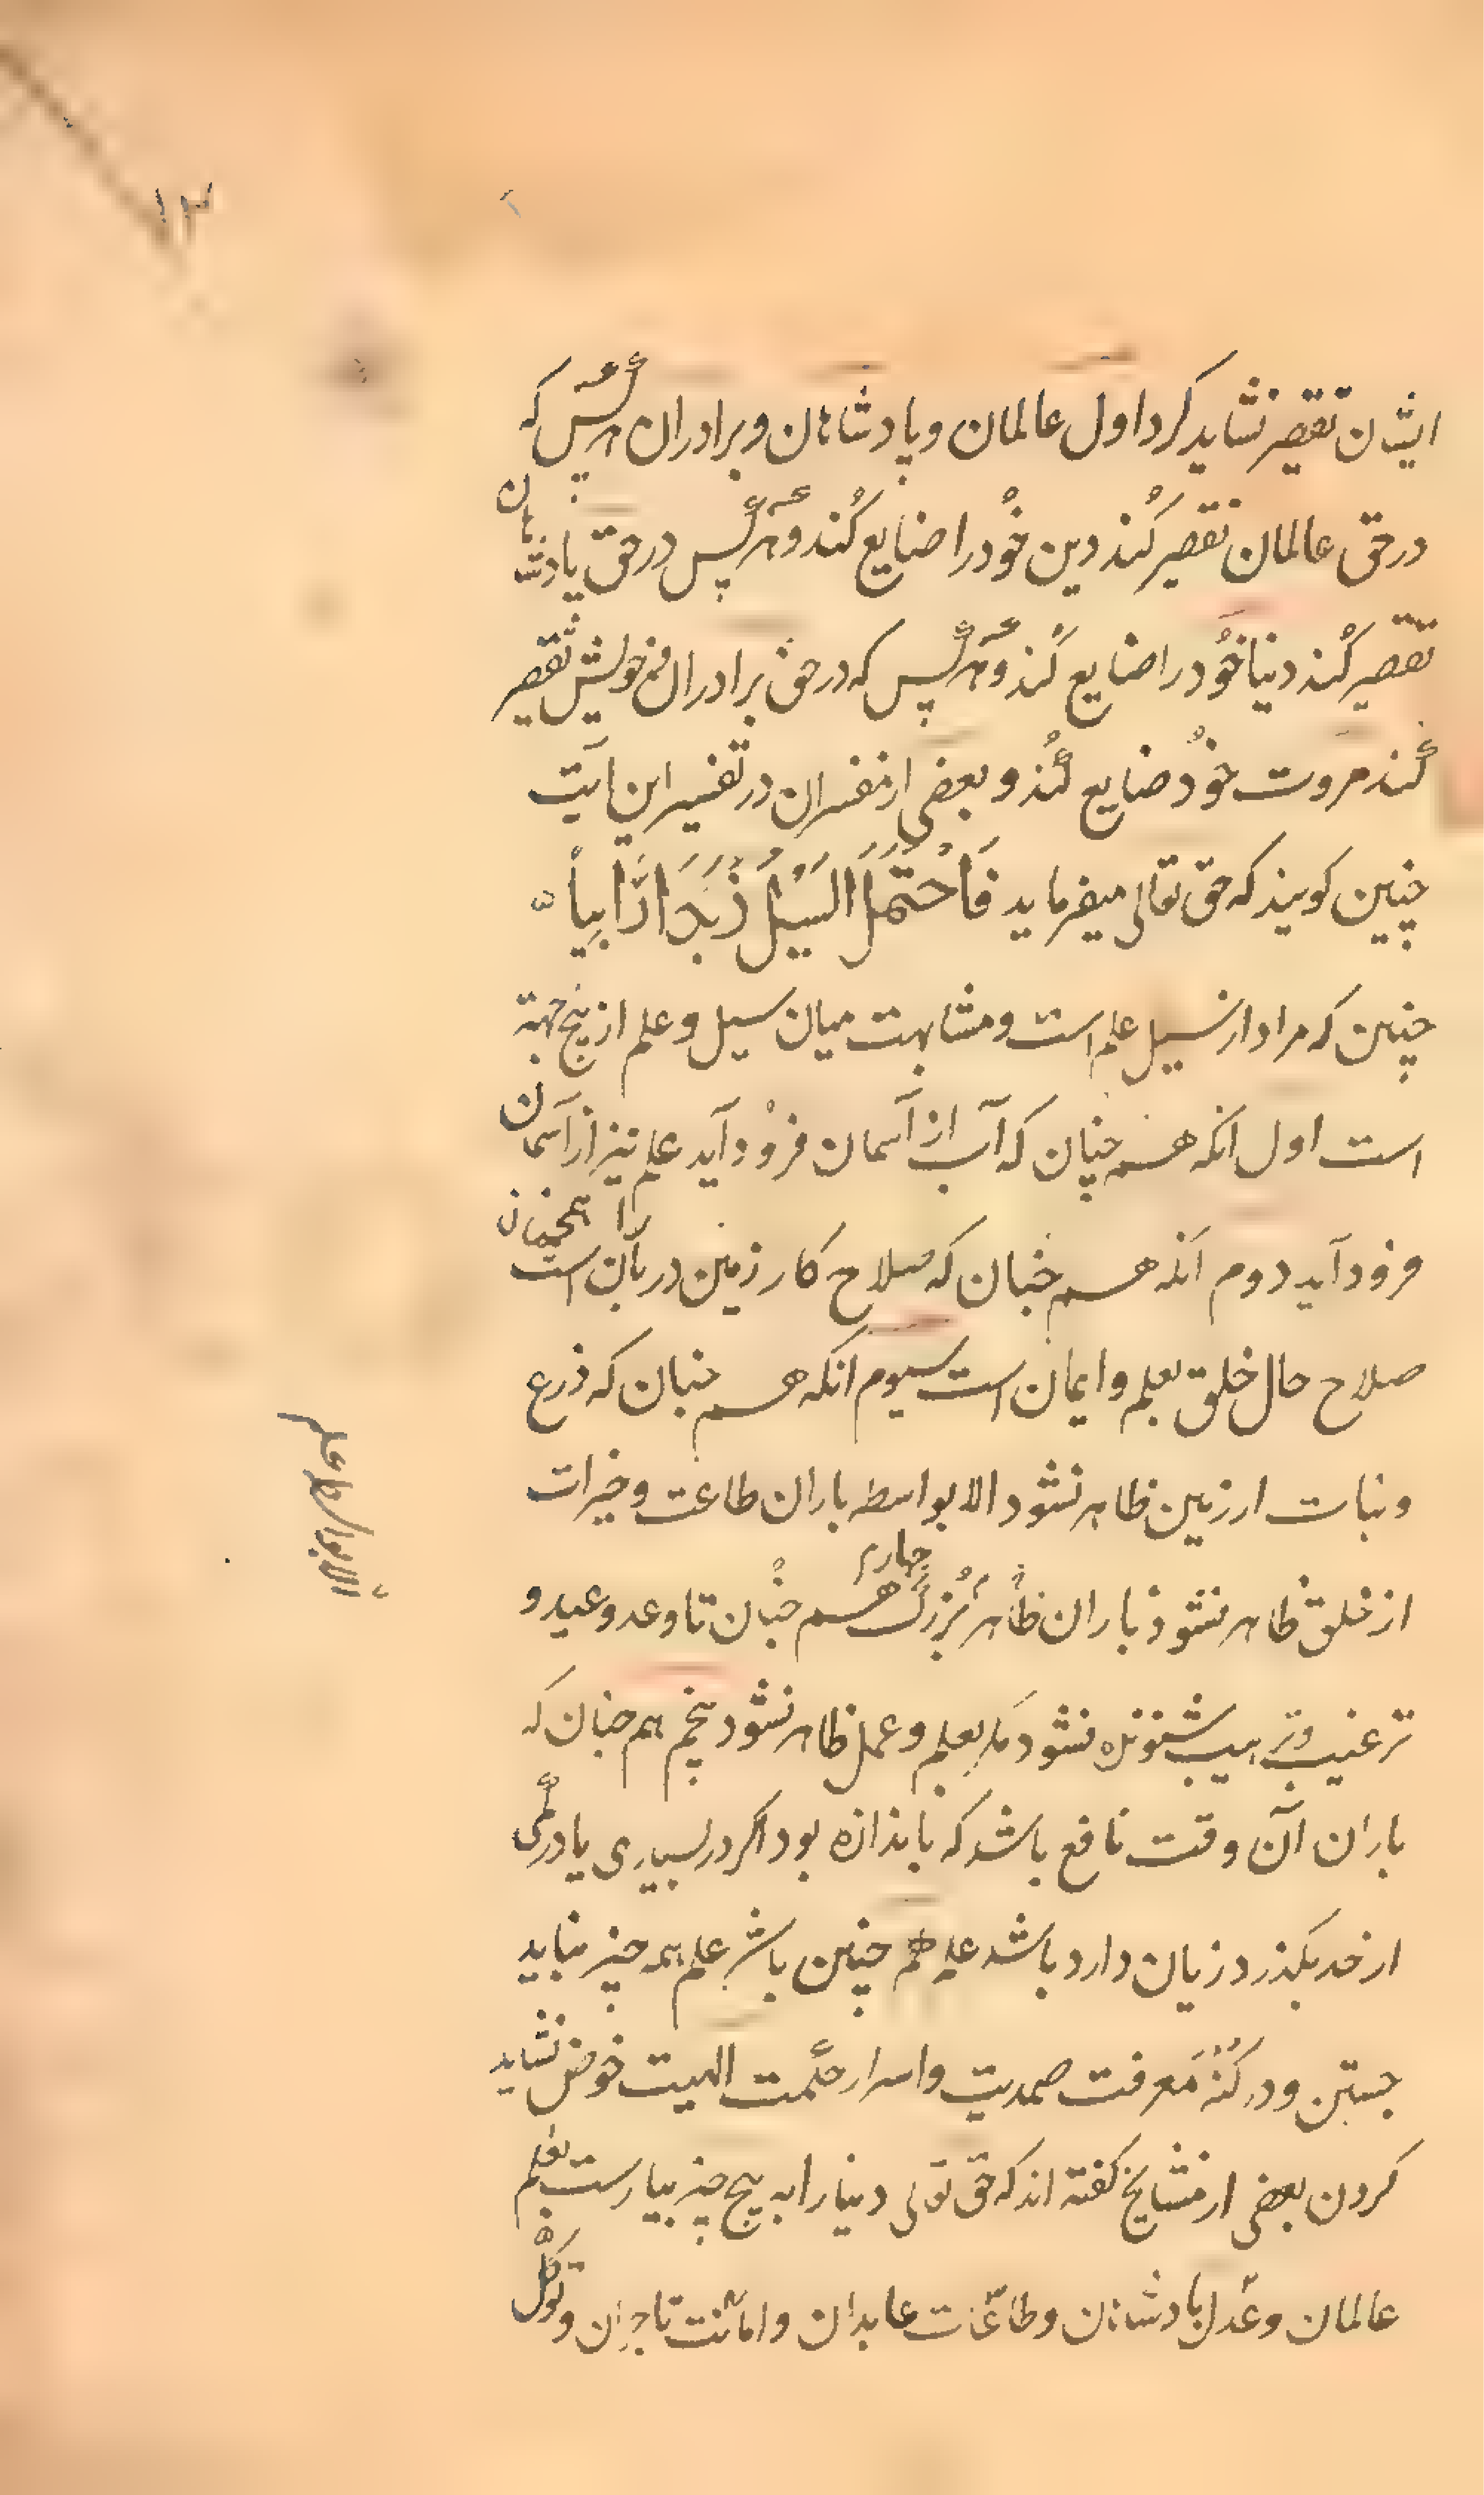 ۱۳
ایشان تقصیر نشاید کرد اول عالمان و پادشاهان و برادران هر کس که
در حق عالمان تقصیر کند دین خود را ضایع کند و هر کس در حق پادشاهان
تقصیر کند دنیا خود را ضایع کند و هر کس که در حق برادران خویش تقصیر
کند مروت خود ضایع کند و بعضی از مفسران در تفسیر این آیت
چنین کویند که حق تعالی میفرماید فَاحْتَمَلَ السَّیْلُ زَبَدًا رَّابِیاً
چنین که مراد از سیل علم است و مشابهت میان سیل و علم از پنج جهة
است اول انکه هم چنان که آب از آسمان فرود آید علم نیز از آسمان
فرود آید دوم آنکه هم چنان که صلاح کار زمین در باران است همچنان
صلاح حال خلق بعلم و ایمان است سیوم انکه هم چنان که ذرع
و نبات از زمین ظاهر نشود الا بواسطه باران طاعت و خیرات
الا بواسطه علم
از خلق ظاهر نشود باران ظاهر بزرک چهارم هم چنان تا وعد و وعید و
ترغیب و ترهیب شنونده نشود مکر بعلم و عمل ظاهر نشود پنجم هم چنان که
باران آن وقت نافع باشد که باندازه بود اکر در بسیاری یا در کمی
از حد بکذرد زیان دارد باشد علم هم چنین باشد بعلم همه چیز نباید
جستن و در کُنْهِ معرفت صمدیت و اسرار حکمت الهیت خوض نشاید
کردن بعضی از مشایخ کفته اند که حق تعالی دنیا را به پنج چیز بیارست بعلم
عالمان و عدل پادشاهان و طاعات عابدان و امانت تاجران و توکل